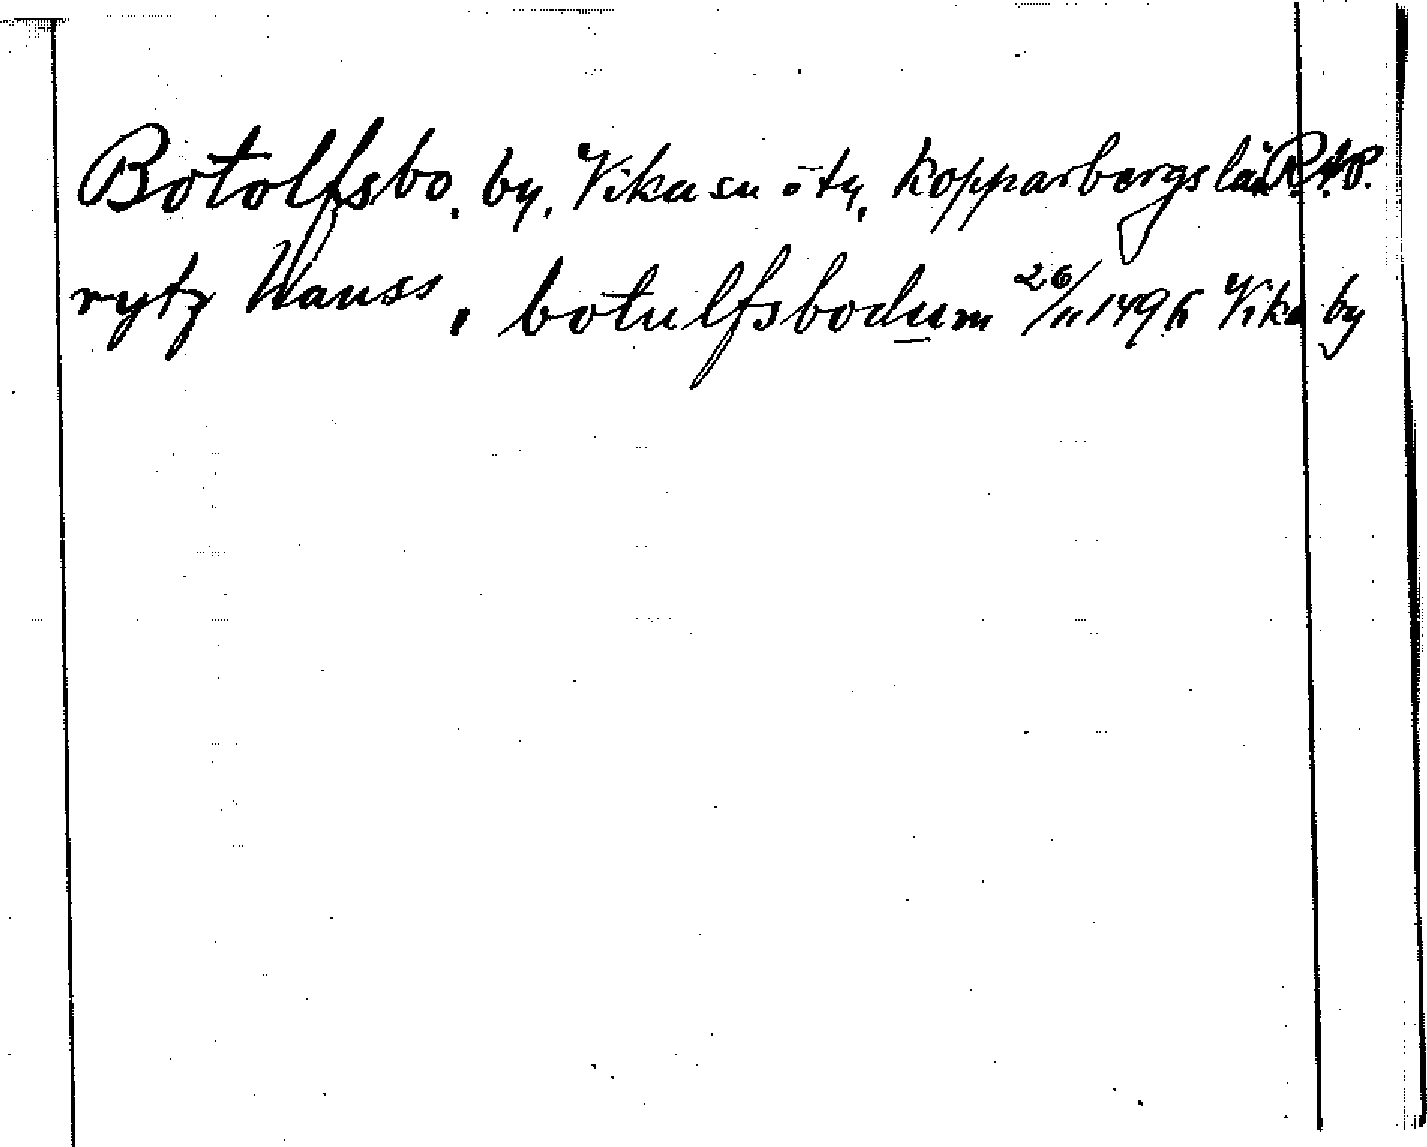 Botolfsbo, by, Vika sn ö ty, Kopparbergs län R.A.P.
rytz Hanss, botulfsbodum 26/11 1495 Vika by